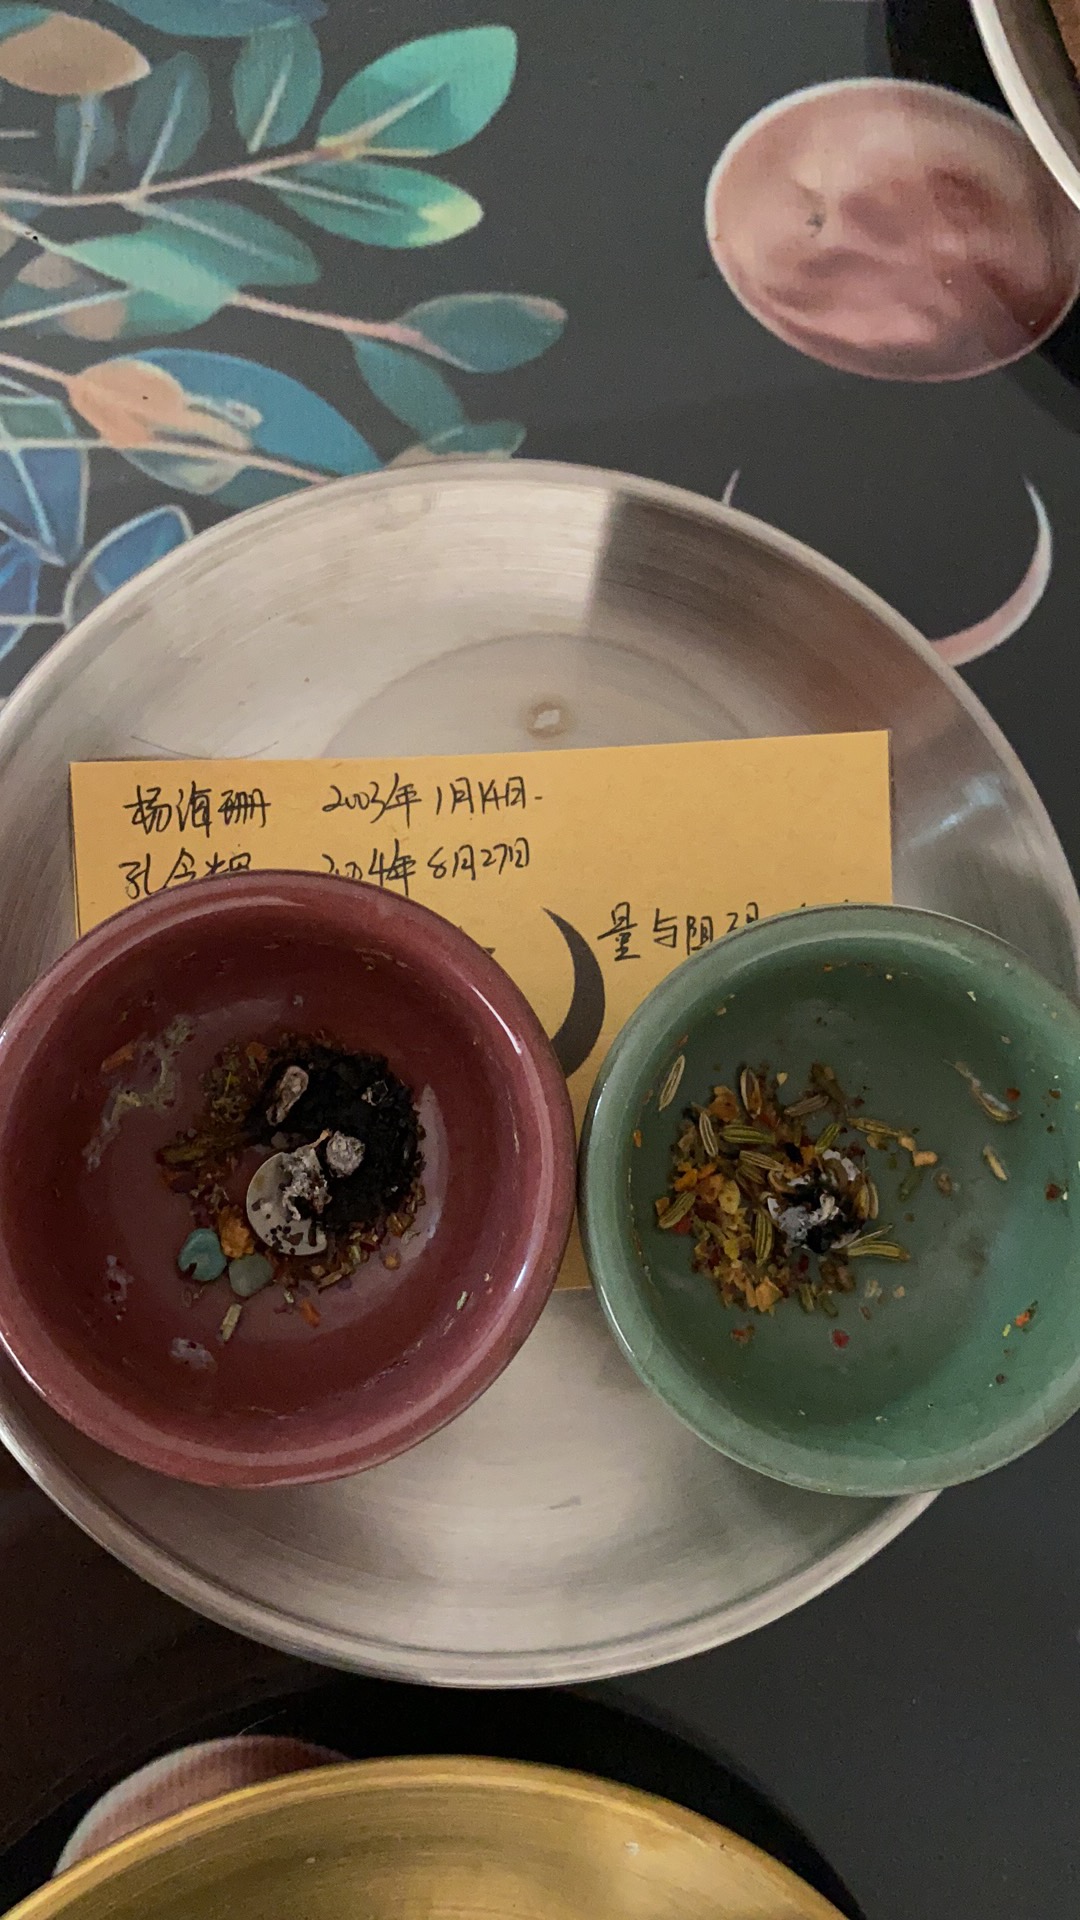 杨海珊 2003年1月14日.
孔令 2004年8月27日
量与阻碍